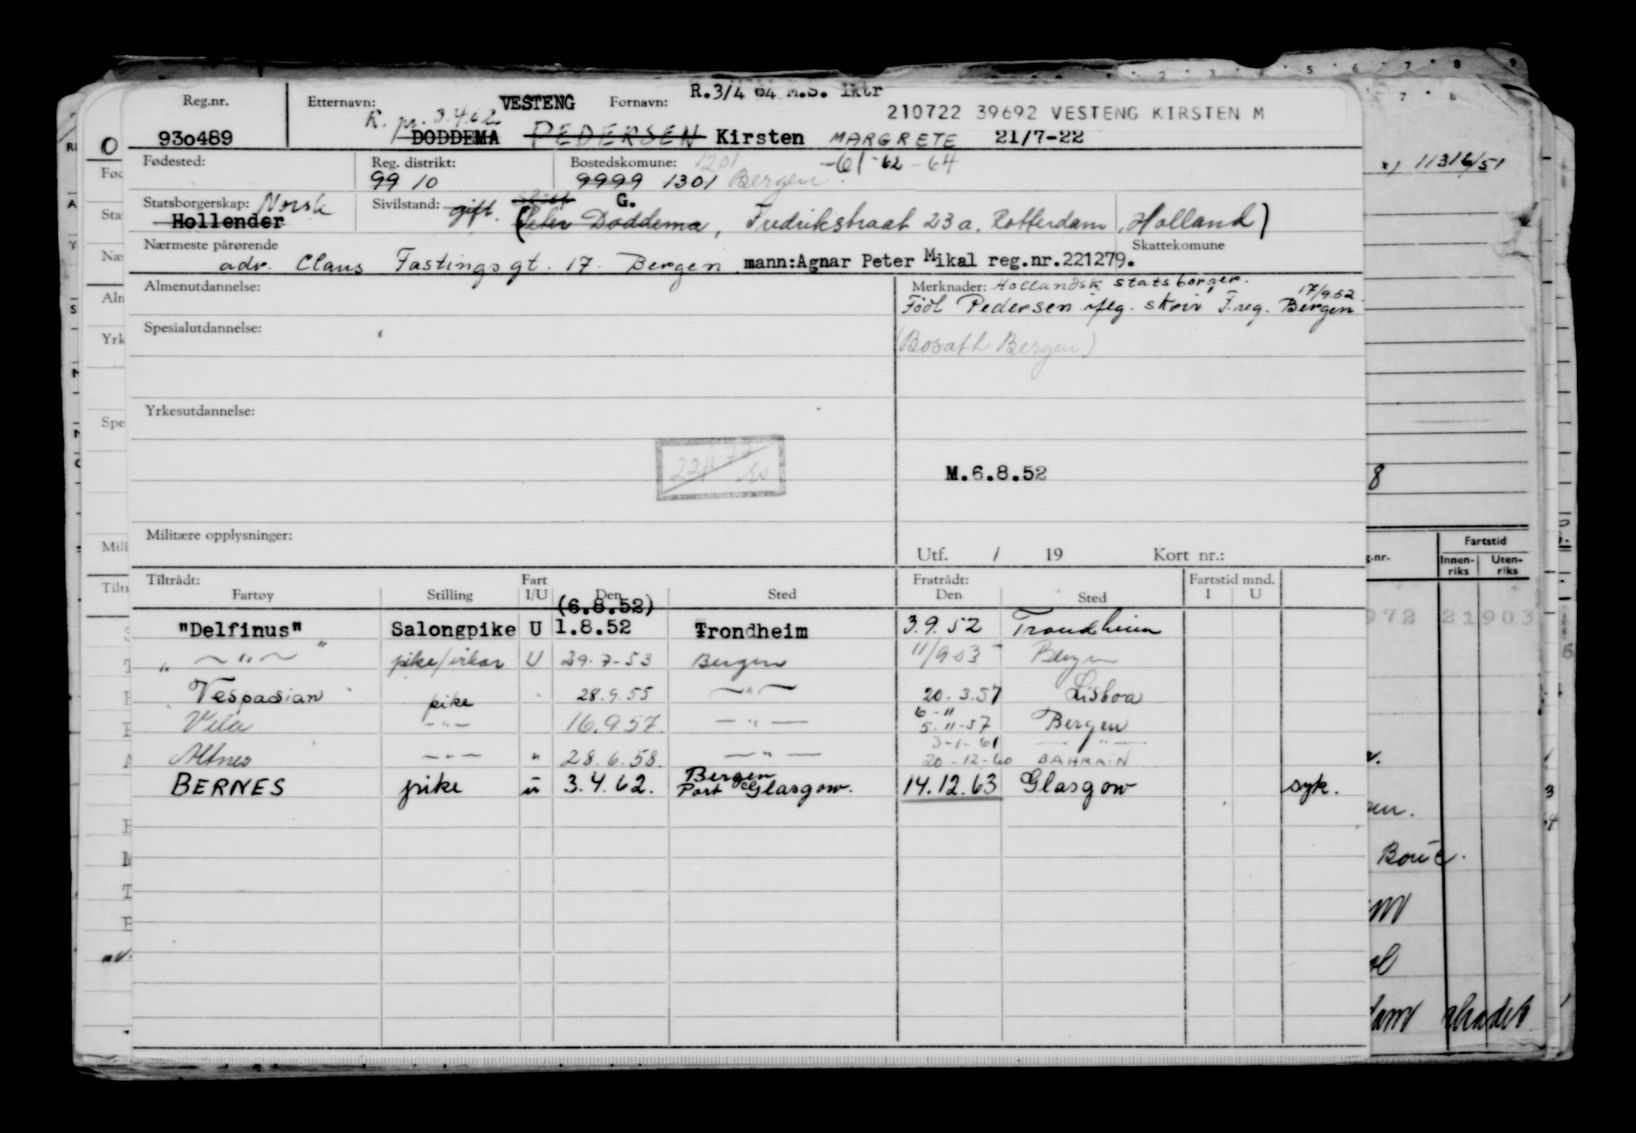 R.3/4 64 M.S. lktr
Reg.nr. Etternavn: VESTENG Fornavn:
210722 39692 VESTENG KIRSTEN M
R. pr. 3.4.62
93o489 DODDEMA PEDERSEN Kirsten MARGRETE 21/7-22
Fødested: Reg. distrikt: Bostedskomune: 1201 -61-62-64
99 10 9999 1301 Bergen.
Statsborgerskap: Norsk Sivilstand: gift. G.
Hollender (Peter Doddema, Fredrikstraat 23a. Rotterdam, Holland)
Nærmeste pårørende Skattekomune
adr. Claus Fastingsgt. 17. Bergen mann:Agnar Peter Mikal reg.nr.221279.
Almenutdannelse: Merknader: Hollandsk statsborger.
Født Pedersen iflg. skriv F.reg. Bergen 17/9.52
Spesialutdannelse:
(Bosatt Bergen)
Yrkesutdannelse:
M.6.8.52
Militære opplysninger:
Utf. / 19 Kort nr.:
Tiltrådt: Fart Fratrådt: Fartstid mnd.
Fartøy Stilling I/U Den Sted Den Sted I U
(6.8.52)
"Delfinus" Salongpike U 1.8.52 Trondheim 3.9.52 Trondheim
" — " — " pike/vikar U 29.7-53 Bergen 11/9 53 Bergen
Vespasian pike " 28.9.55 — " — 20.3.57 Lisboa
6-11
Vela — " — 16.9.57. — " — 5.11-57 Bergen
3-1-61 — " —
Altnes — " — " 28.6.58. — " — 20-12-60 BAHRAIN
BERNES pike u 3.4.62. Bergen 14.12.63 Glasgow syk.
Port Glasgow.
x) 11316/51
8
g.nr. Fartstid
Innen-riks Uten-riks
972 21903